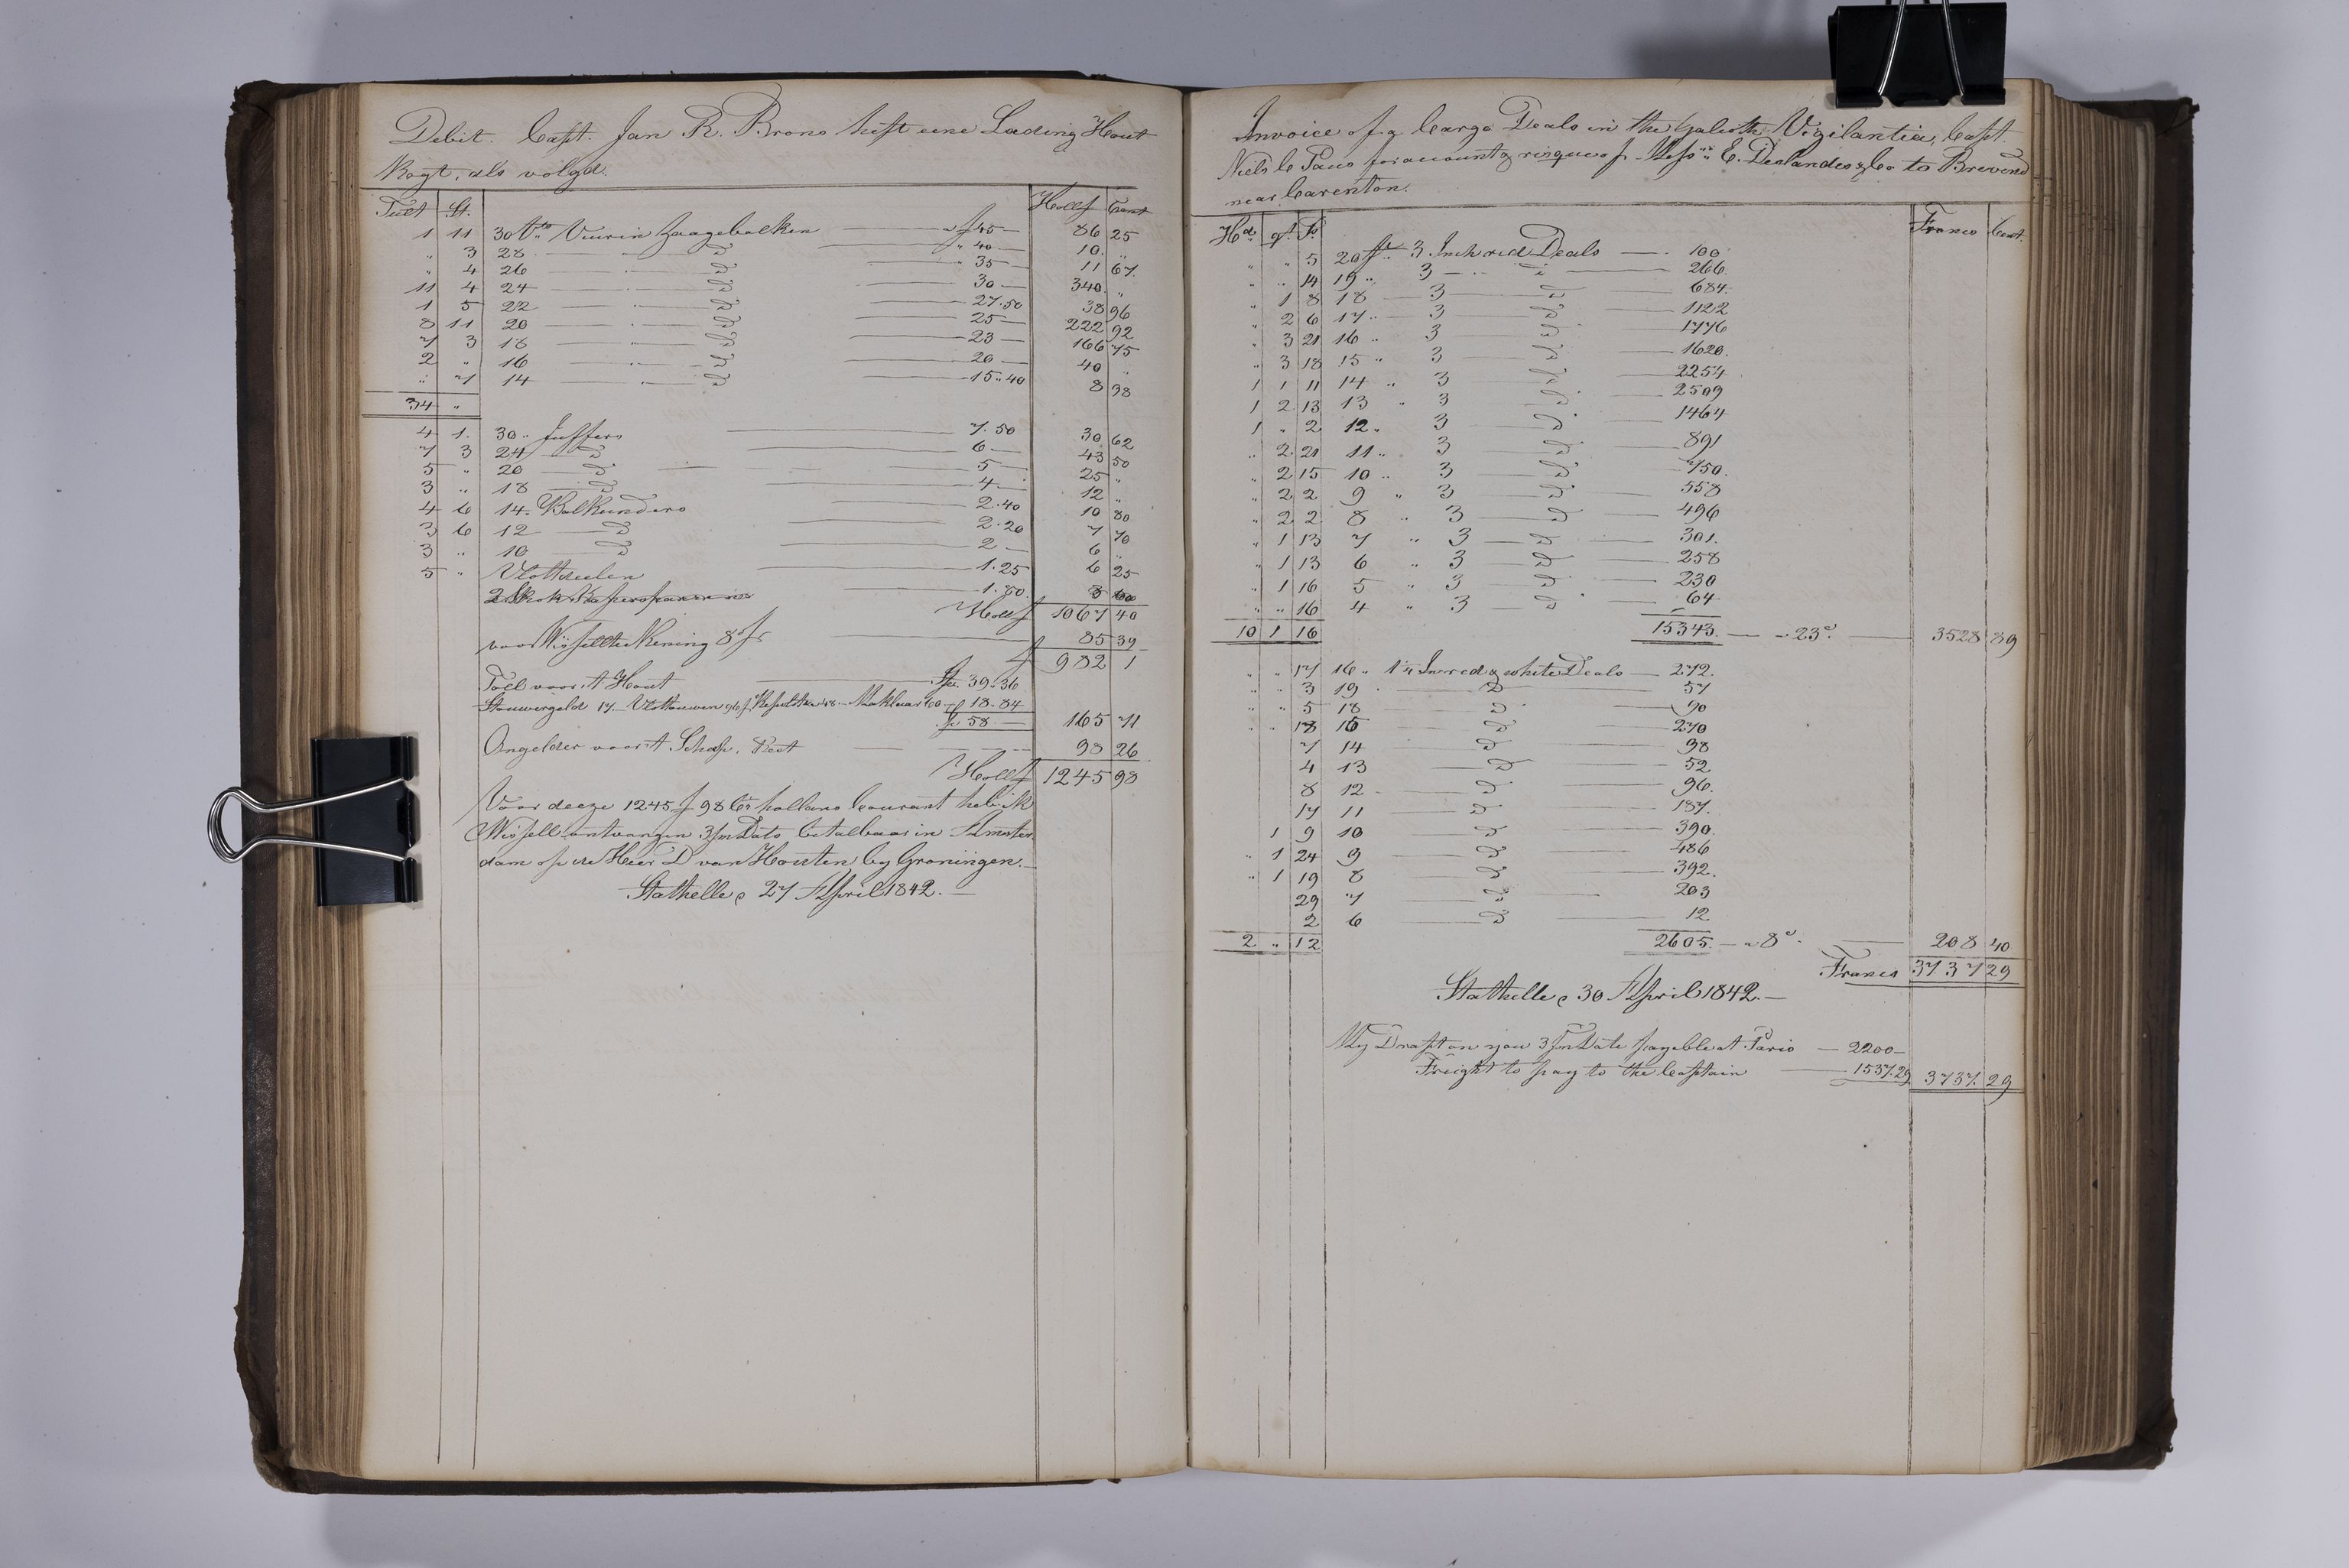 Debit. Capt. Jan R. Brons heft eene Lading Hout
Kogt, als volgd.
Tult St. Hollf Cent
1 11 30 Vurin Zaagebalken f 45 — 86 25
" 3 28 — D — " 40 — 10 "
" 4 26 — D — " 35 — 11 67
11 4 24 — D — 30 — 340 "
1 5 22 — D — 27.50 38 96
8 11 20 — D — 25 — 222 92
7 3 18 — D — 23 — 166 75
2 " 16 — D — 20 — 40 "
" 7 14 — D — 15.40 8 98
34 "
4 1 30 " Juffers — 7.50 30 62
7 3 24 — D — 6 — 43 50
5 " 20 — D — 5 — 25 "
3 " 18 — D — 4 — 12 "
4 6 14 Balkenders — 2.40 10 80
3 6 12 — D — 2.20 7 70
3 " 10 — D — 2 — 6 "
5 " Vlottseelen — 1.25 6 25
2 Skok — 1.80 3 60
Hollf 1067 40
voor Wissellteekening 8 — 85 39
f 982 1
Toll voor 't Hout — Sp. 39.36
Stauwergeld 17 — 18.84
Sp. 58 — 165 71
Ongelder voor 't Schip — 98 26
Hollf 1245 98
Voor deeze 1245 f 98 Cs hollans Courant heb ik
Wissell ontvangen 3/m Dato betalbaar in Amster
dam op de Heer D van Houten by Groningen. —
Stathelle, 27 April 1842. —
Invoice of a Cargo Deals in the Galioth Vigilantia, Capt.
Niels C Paus for account & risque of Messrs. E. Deslandes & Co to Brevend
near Carenton.
Hd. qr. Ps. Francs Cent.
" " 5 20 ft. 3 Inch red Deals — 100
" " 14 19 " 3 — D — 266.
" 1 8 18 3 — D — 684.
" 2 6 17 " 3 — D — 1122
" 3 21 16 " 3 — D — 1776
" 3 18 15 " 3 — D — 1620.
1 1 11 14 " 3 — D — 2254
1 2 13 13 " 3 — D — 2509
1 " 2 12 " 3 — D — 1464
" 2 21 11 " 3 — D — 891
" 2 15 10 " 3 — D — 750.
" 2 2 9 " 3 — D — 558
" 2 2 8 " 3 — D — 496
" 1 13 7 " 3 — D — 301.
" 1 13 6 " 3 — D — 258
" 1 16 5 " 3 — D — 230
" " 16 4 " 3 — D — 64
10 1 16 15343. — a 23c. — 3528 89
" " 17 16 " 1¼ In red & white Deals — 272.
" " 3 19 — D — 57
" " 5 18 — D — 90
" " 18 15 — D — 270
7 14 — D — 98
4 13 — D — 52
8 12 — D — 96.
17 11 — D — 187.
1 9 10 — D — 390.
" 1 24 9 — D — 486
" 1 19 8 — D — 392.
29 7 — D — 203
2 6 — D — 12
2 " 12 2605. — a 8c. — 208 40
Francs 3737 29
Stathelle, 30 April 1842. —
My Draft on you 3/m Date payble at Paris — 2200 —
Freight to pay to the Captain — 1537.29 3737. 29